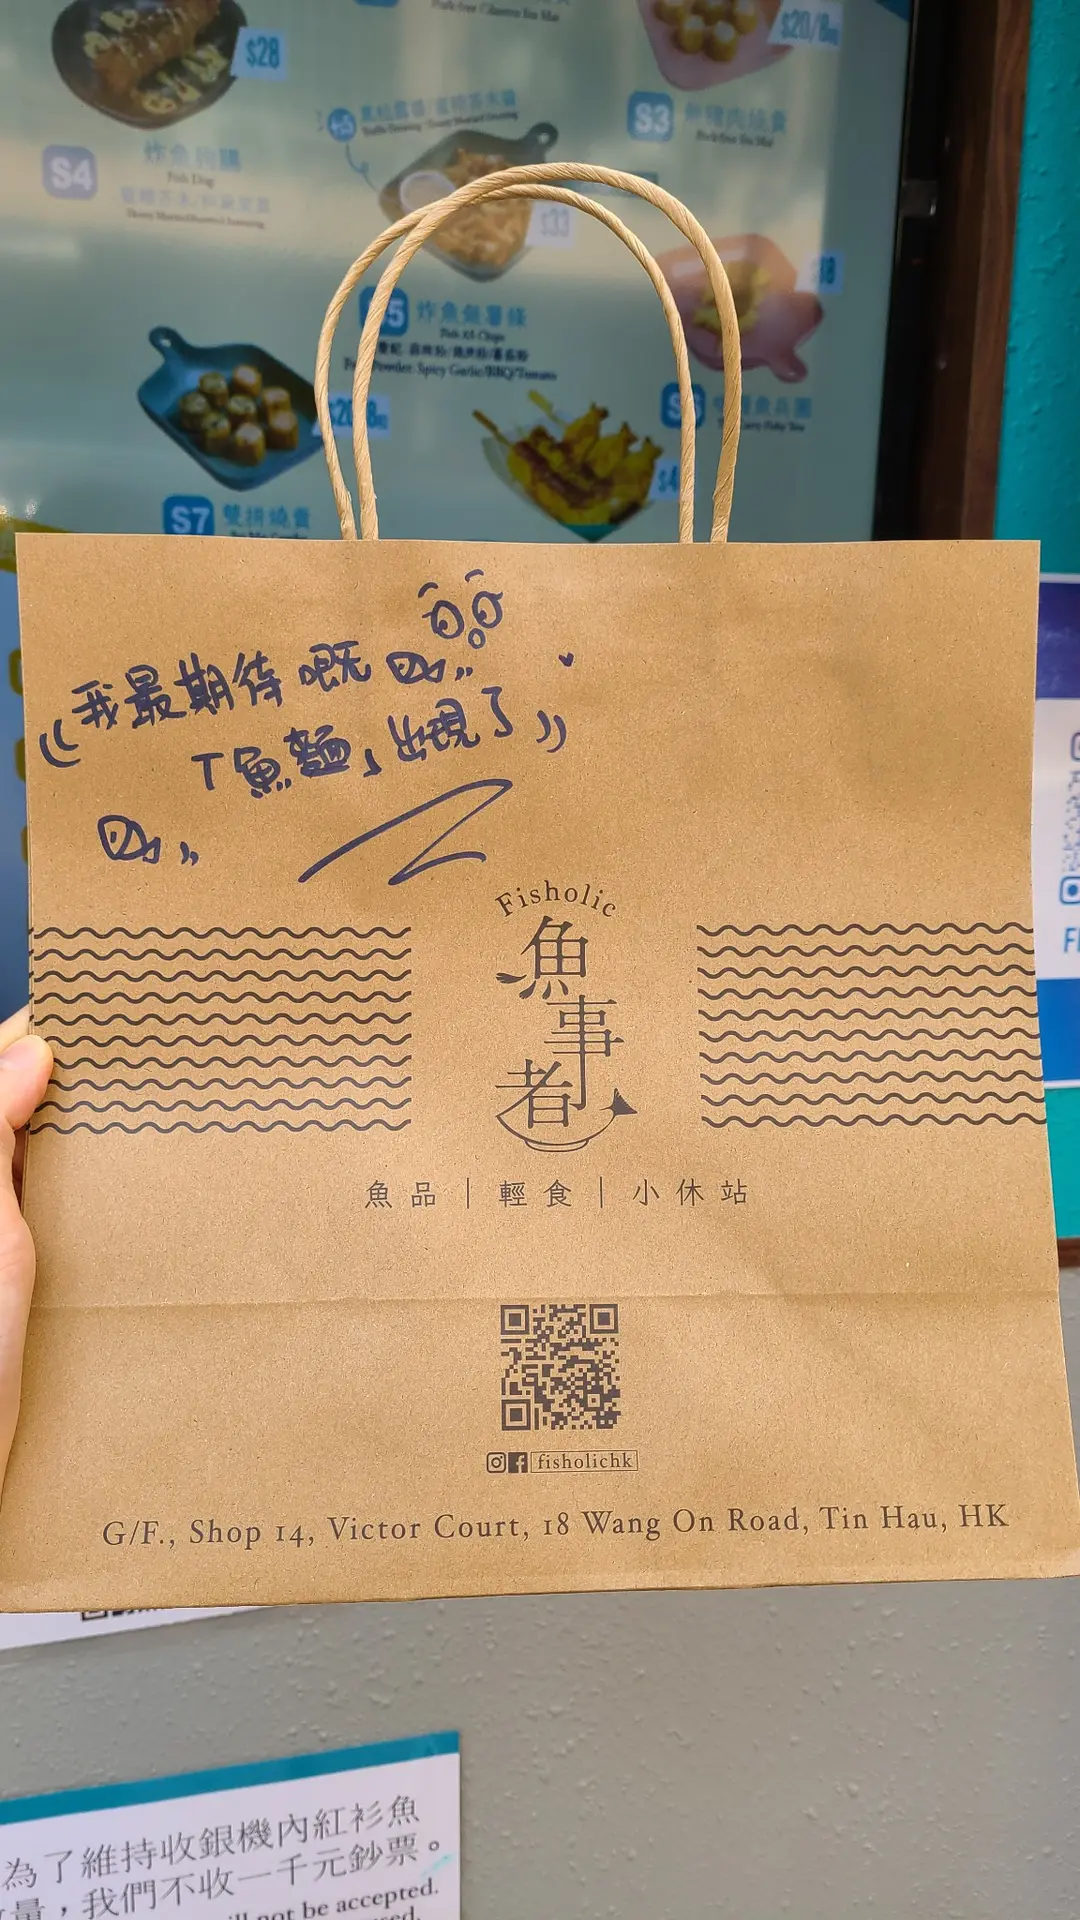 $28
$20/8粒
S4
炸魚狗腸
Fish Dog
S3
Pork-free Siu Mai
$33
炸魚無薯條
Fish AS Chips
Powder: Spicy Garlic/BBQ/Tomato
S7
雙拼燒賣
((我最期待嘅
「魚麵」出現了))
Fisholic
魚事者
魚品 | 輕食 | 小休站
fisholichk
G/F., Shop 14, Victor Court, 18 Wang On Road, Tin Hau, HK
為了維持收銀機內紅衫魚
量，我們不收一千元鈔票。
not be accepted.